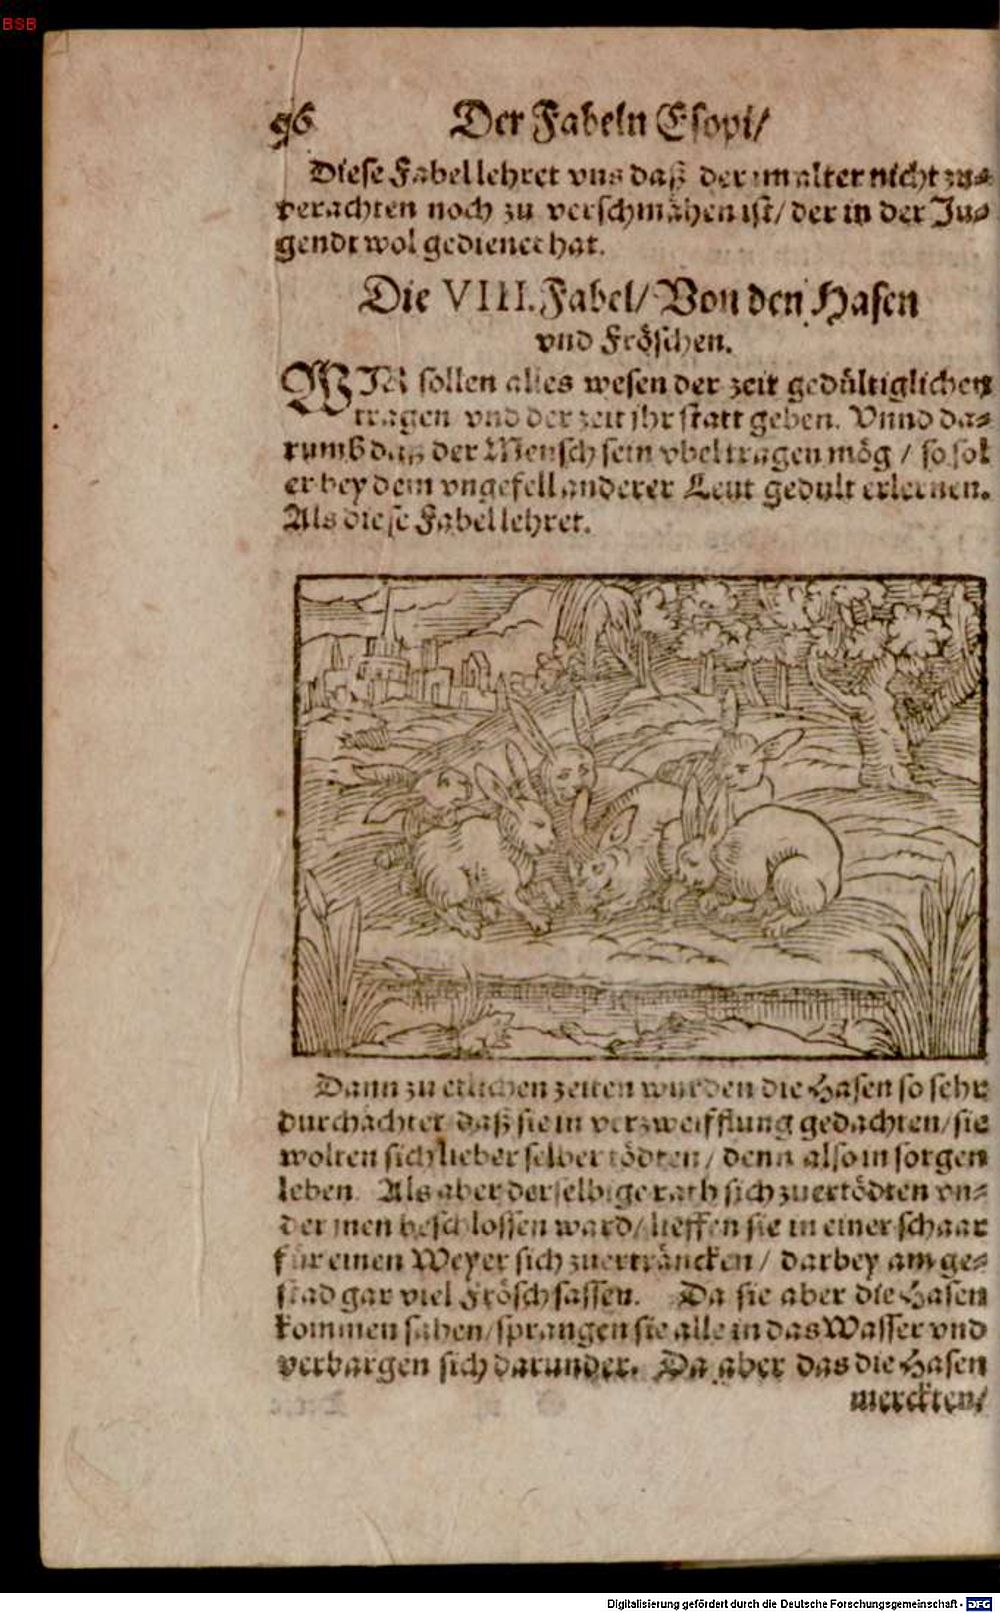 BSB
96 Der Fabeln Esopi/
Diese Fabel lehret vns daß der im alter nicht zu=
verachten noch zu verschmähen ist/ der in der Ju=
gendt wol gedienet hat.
Die VIII. Fabel/ Von den Hasen
vnd Fröschen.
WIR sollen alles wesen der zeit gedültiglichen
tragen vnd der zeit jhr statt geben. Vnnd da=
rumb daß der Mensch sein vbel tragen mög / so sol
er bey dem vngefell anderer Leut gedult erlernen.
Als diese Fabel lehret.
Dann zu etlichen zeiten wurden die Hasen so sehr
durchächtet daß sie in verzweifflung gedachten/ sie
wolten sich lieber selber tödten/ denn also in sorgen
leben. Als aber derselbige rath sich zuertödten vn=
der jnen beschlossen ward/ lieffen sie in einer schaar
für einen Weyer sich zuerträncken / darbey am ge=
stad gar viel Frösch sassen. Da sie aber die Hasen
kommen sahen/ sprangen sie alle in das Wasser vnd
verbargen sich darunder. Da aber das die Hasen
merckten/
Digitalisierung gefördert durch die Deutsche Forschungsgemeinschaft - DFG